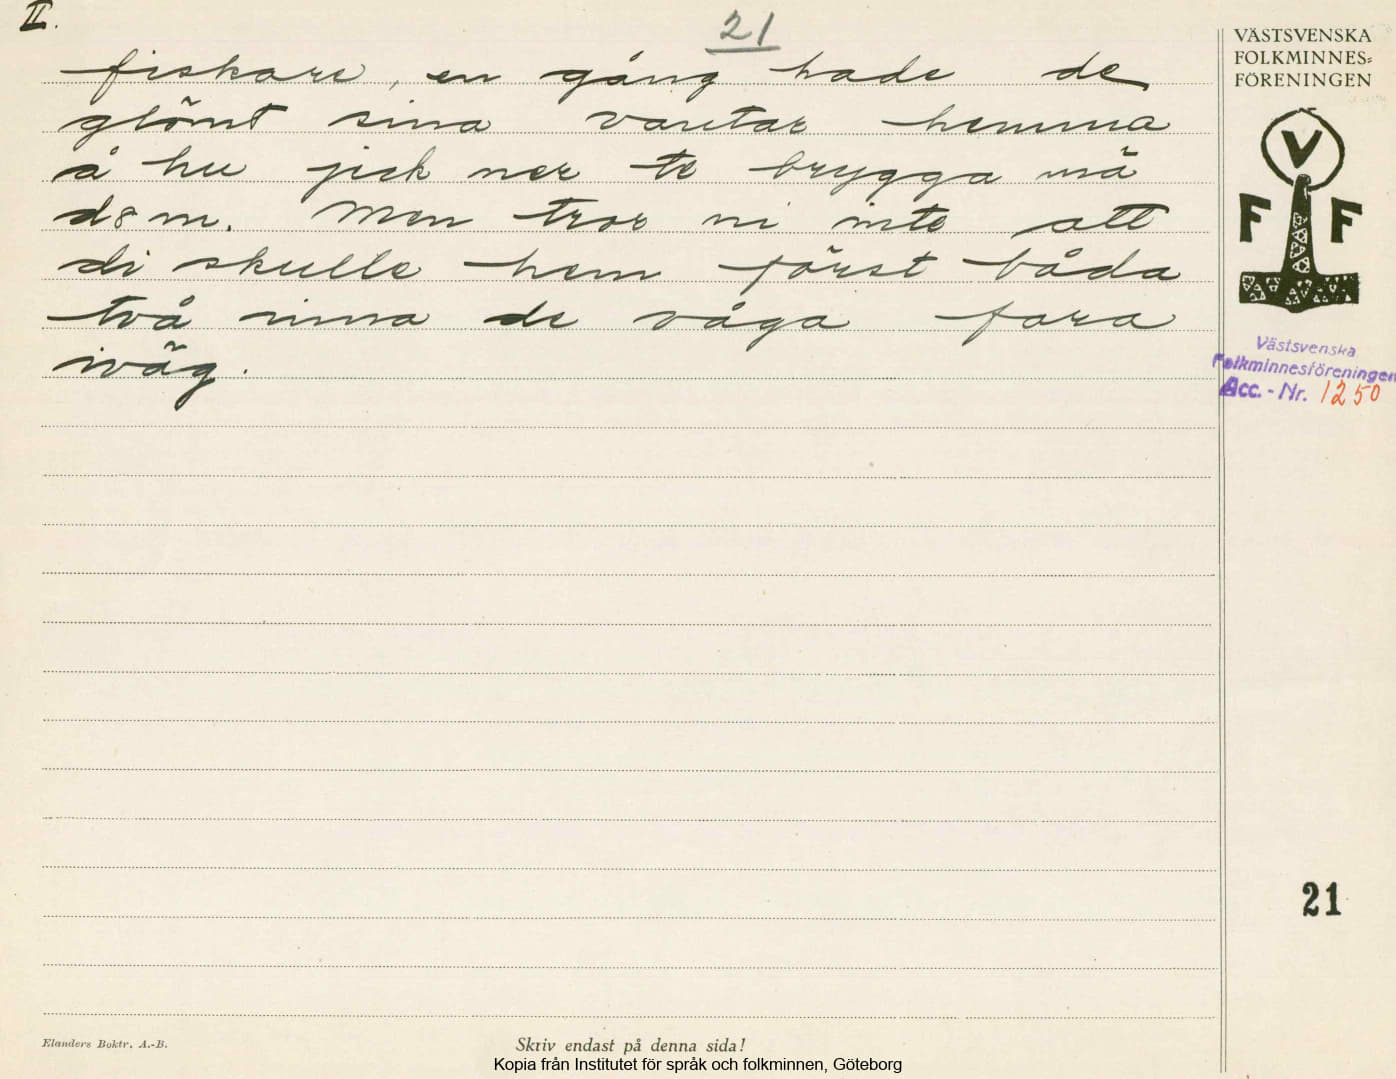 II.
21
fiskare, en gång hade de
glömt sina vantar hemma
å hu jick ner te brygga mä
dem. Men tror ni inte att
di skulle hem först båda
två inna de våga fara
iväg.
VÄSTSVENSKA
FOLKMINNES=
FÖRENINGEN
V
F F
Västsvenska
Folkminnesföreningen
Acc. - Nr. 1250
21
Elanders Boktr. A.-B.
Skriv endast på denna sida!
Kopia från Institutet för språk och folkminnen, Göteborg